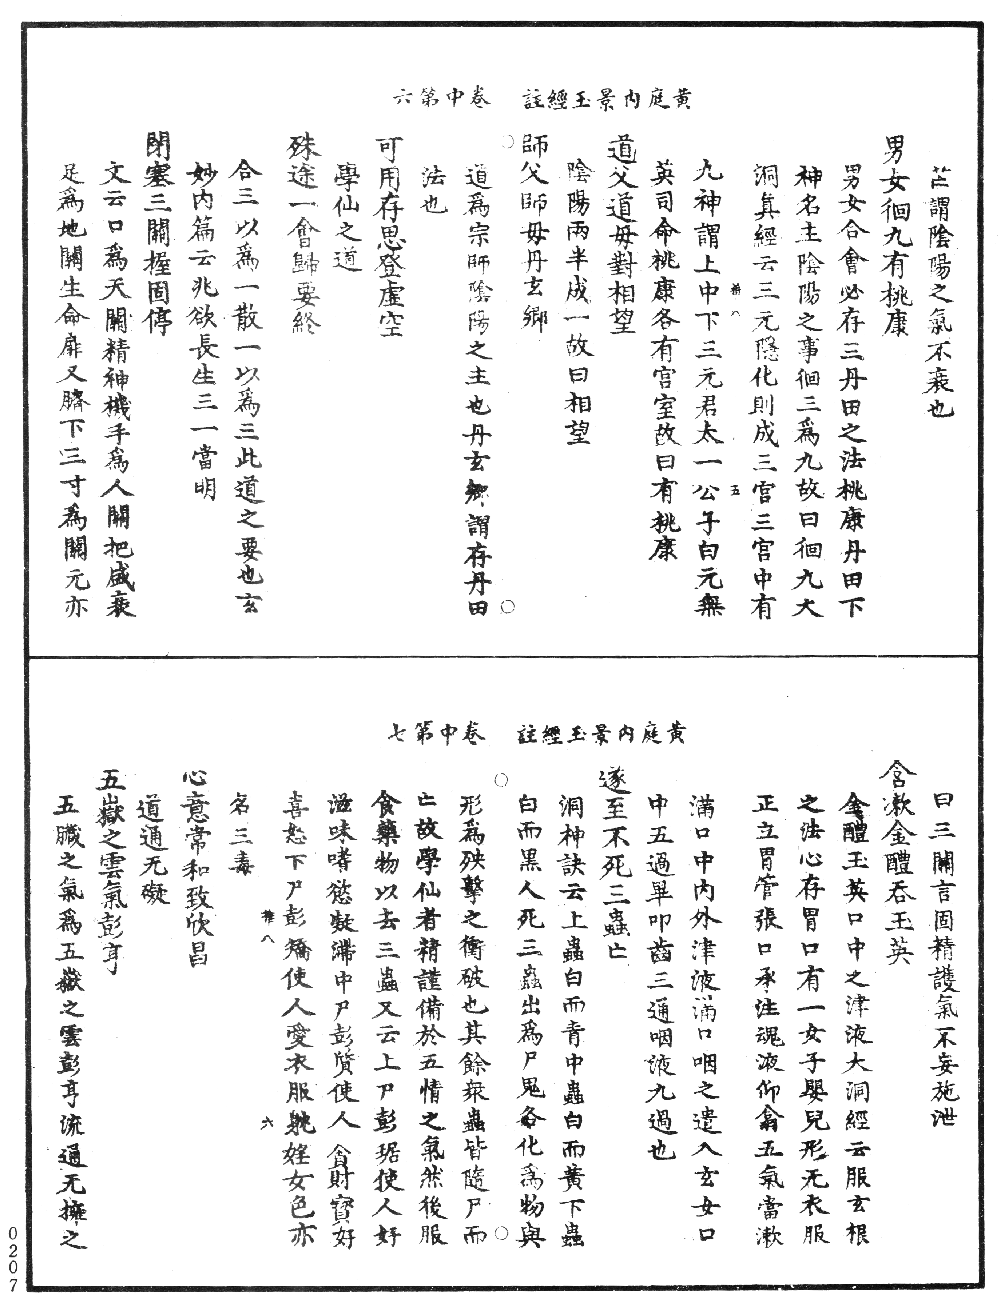 黃庭内景玉經註　卷中第六
芒謂陰陽之氣不衰也
男女徊九有桃康
男女合會必存三丹田之法桃康丹田下
神名主陰陽之事徊三爲九故曰徊九大
洞真經云三元隱化則成三宮三宮中有
九神謂上中下三元君太一公子白元無
英司命桃康各有宮室故曰有桃康
道父道母對相望
陰陽兩半成一故曰相望
師父師母丹玄鄉
道爲宗師陰陽之主也丹玄鄉謂存丹田
法也
可用存思登虛空
學仙之道
殊途一會歸要終
合三以爲一散一以爲三此道之要也玄
妙内篇云兆欲長生三一當明
閉塞三關握固停
文云口爲天關精神機手爲人關把盛衰
足爲地關生命扉又臍下三寸爲關元亦
五
黃庭内景玉經註　卷中第七
曰三關言固精護氣不妄施泄
含漱金醴吞玉英
金醴玉英口中之津液大洞經云服玄根
之法心存胃口有一女子嬰兒形无衣服
正立胃管張口承注魂液仰翕五氣當漱
滿口中内外津液滿口咽之遣入玄女口
中五過畢叩齒三通咽液九過也
遂至不死三蟲亡
洞神訣云上蟲白而青中蟲白而黃下蟲
白而黑人死三蟲出爲尸鬼各化爲物與
形爲殃擊之衝破也其餘衆蟲皆隨尸而
亡故學仙者精謹備於五情之氣然後服
食藥物以去三蟲又云上尸彭琚使人好
滋味嗜慾凝滯中尸彭質使人貪財寶好
喜怒下尸彭矯使人愛衣服耽婬女色亦
推八　六
名三毒
心意常和致欣昌
道通无礙
五嶽之雲氣彭亨
五臟之氣爲五嶽之雲彭亨流通无擁之
0207